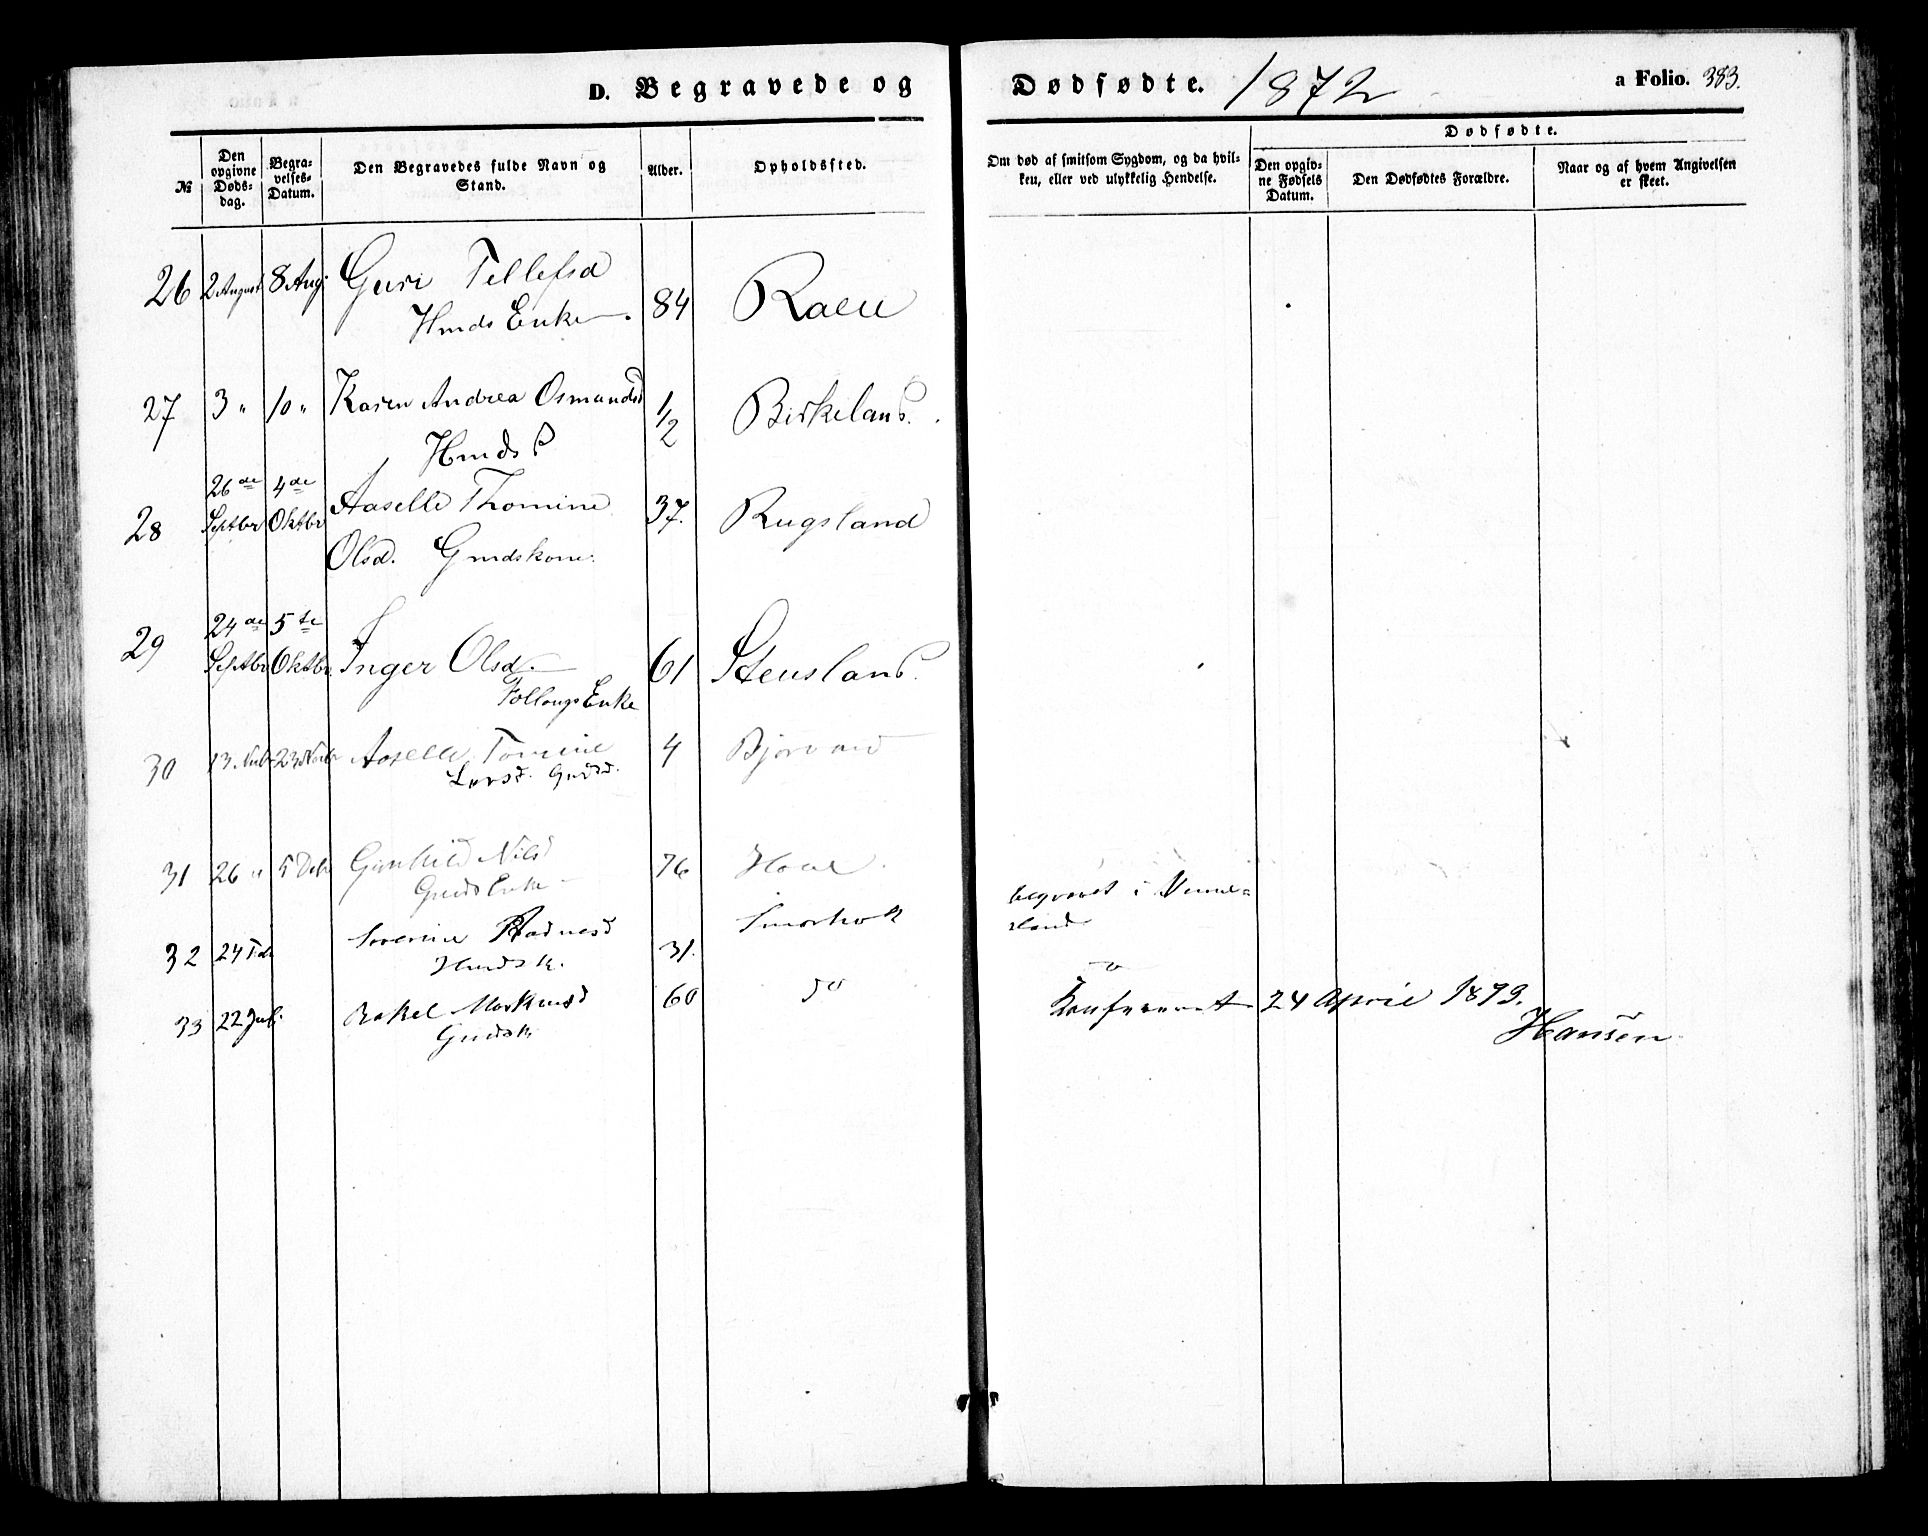 D. Begravede og Dødfødte. 1872 a Folio. 383.
Dødfødte.
№ Den opgivne Døds-dag. Begra-velses-Datum. Den Begravedes fulde Navn og Stand. Alder. Opholdssted. Om død af smitsom Sygdom, og da hvil-ken, eller ved ulykkelig Hendelse. Den opgiv-ne Fødsels Datum. Den Dødfødtes Forældre. Naar og af hvem Angivelsen er skeet.
26 2 August 8 Aug Guri Tellefsd 84 Raen
Hmds Enke.
27 3 " 10 " Karen Andrea Osmundsd 1/2 Birkeland.
Hmds
26de 4de
28 Septbr Oktbr Aaselle Thomine 37. Rugsland
Olsd. Gmdskone.
24de 5te
29 Septbr Oktbr. Inger Olsd. 61 Stensland.
Follaugs Enke
30 13 Nvbr 23 Novbr Aaselle Tomine 4 Bjorvand
Larsd. Gmdsd.
31 26 " 5 Debr Gunhild Nilsd 76
Gmds Enke begravet i Vennes-
land
32 24 Severine 31.
Hmdsk.
33 22 Juli Rakel Markusd 60 do
Gmdsk
Konfereret 24 April 1873.
Hansen.